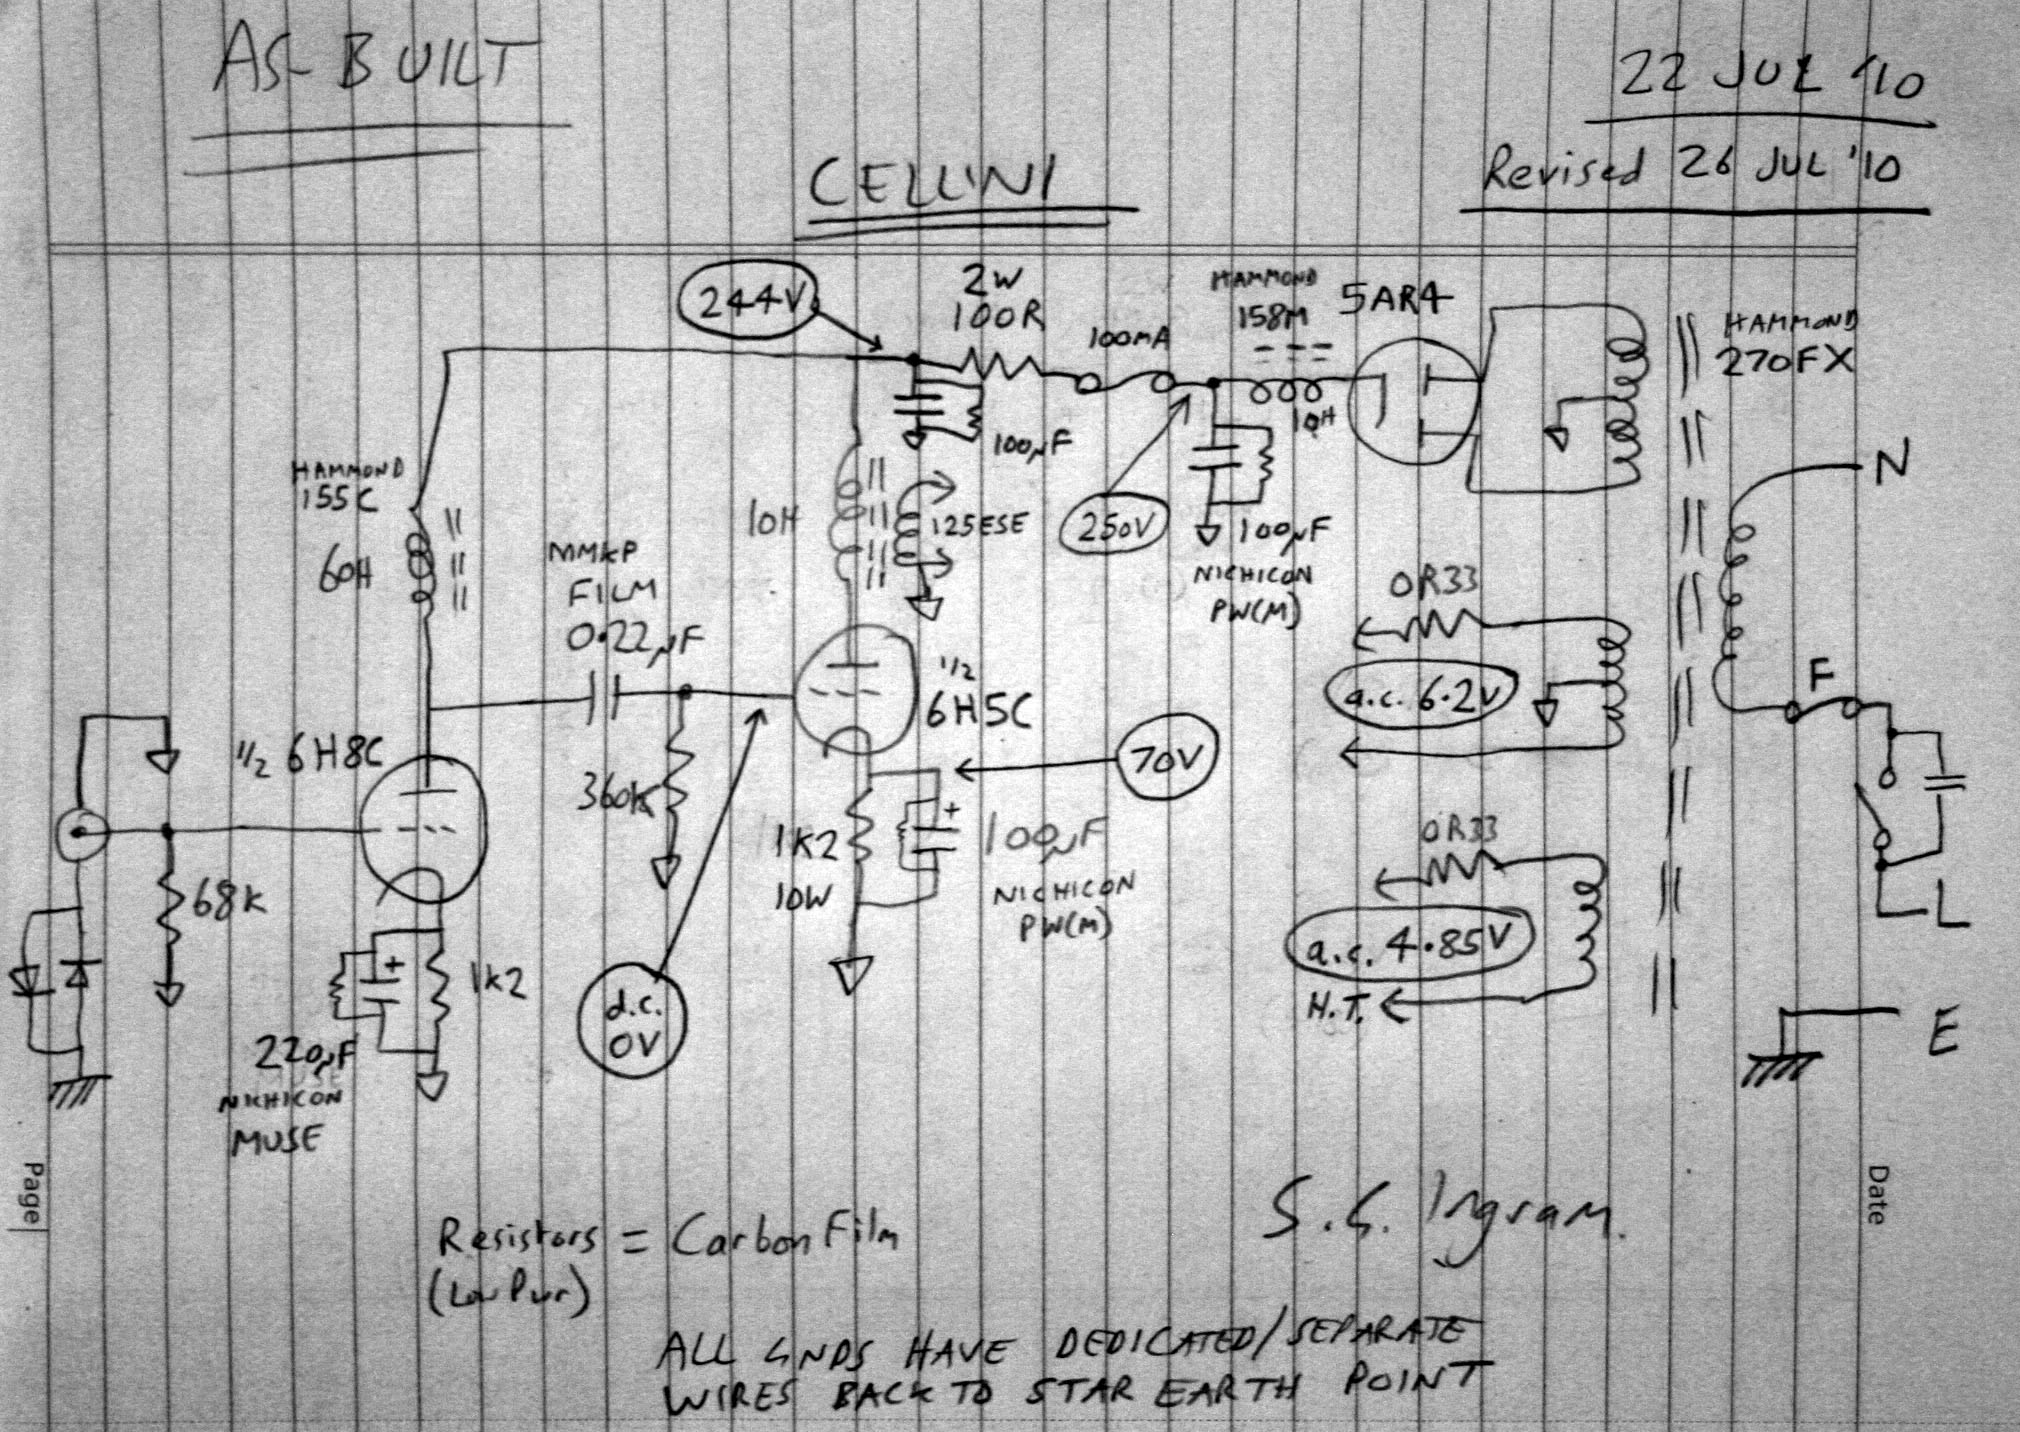 AS-BUILT
22 JUL '10
Revised 26 JUL '10
CELLINI
244V
2W
100R
100MA
HAMMOND
158M
5AR4
HAMMOND
270FX
10H
100µF
HAMMOND
155C
60H
10H
125ESE
250V
100µF
NICHICON
PW(M)
N
MMKP
FILM
0.22µF
0R33
a.c. 6.2V
F
1/2
6H5C
70V
1/2 6H8C
360K
1K2
10W
100µF
NICHICON
PW(M)
0R33
a.c. 4.85V
H.T.
L
68K
1K2
d.c.
0V
220µF
NICHICON
MUSE
E
Page
Date
Resistors = Carbon Film
(Low Pwr)
S.G. Ingram.
ALL GNDS HAVE DEDICATED/SEPARATE
WIRES BACK TO STAR EARTH POINT